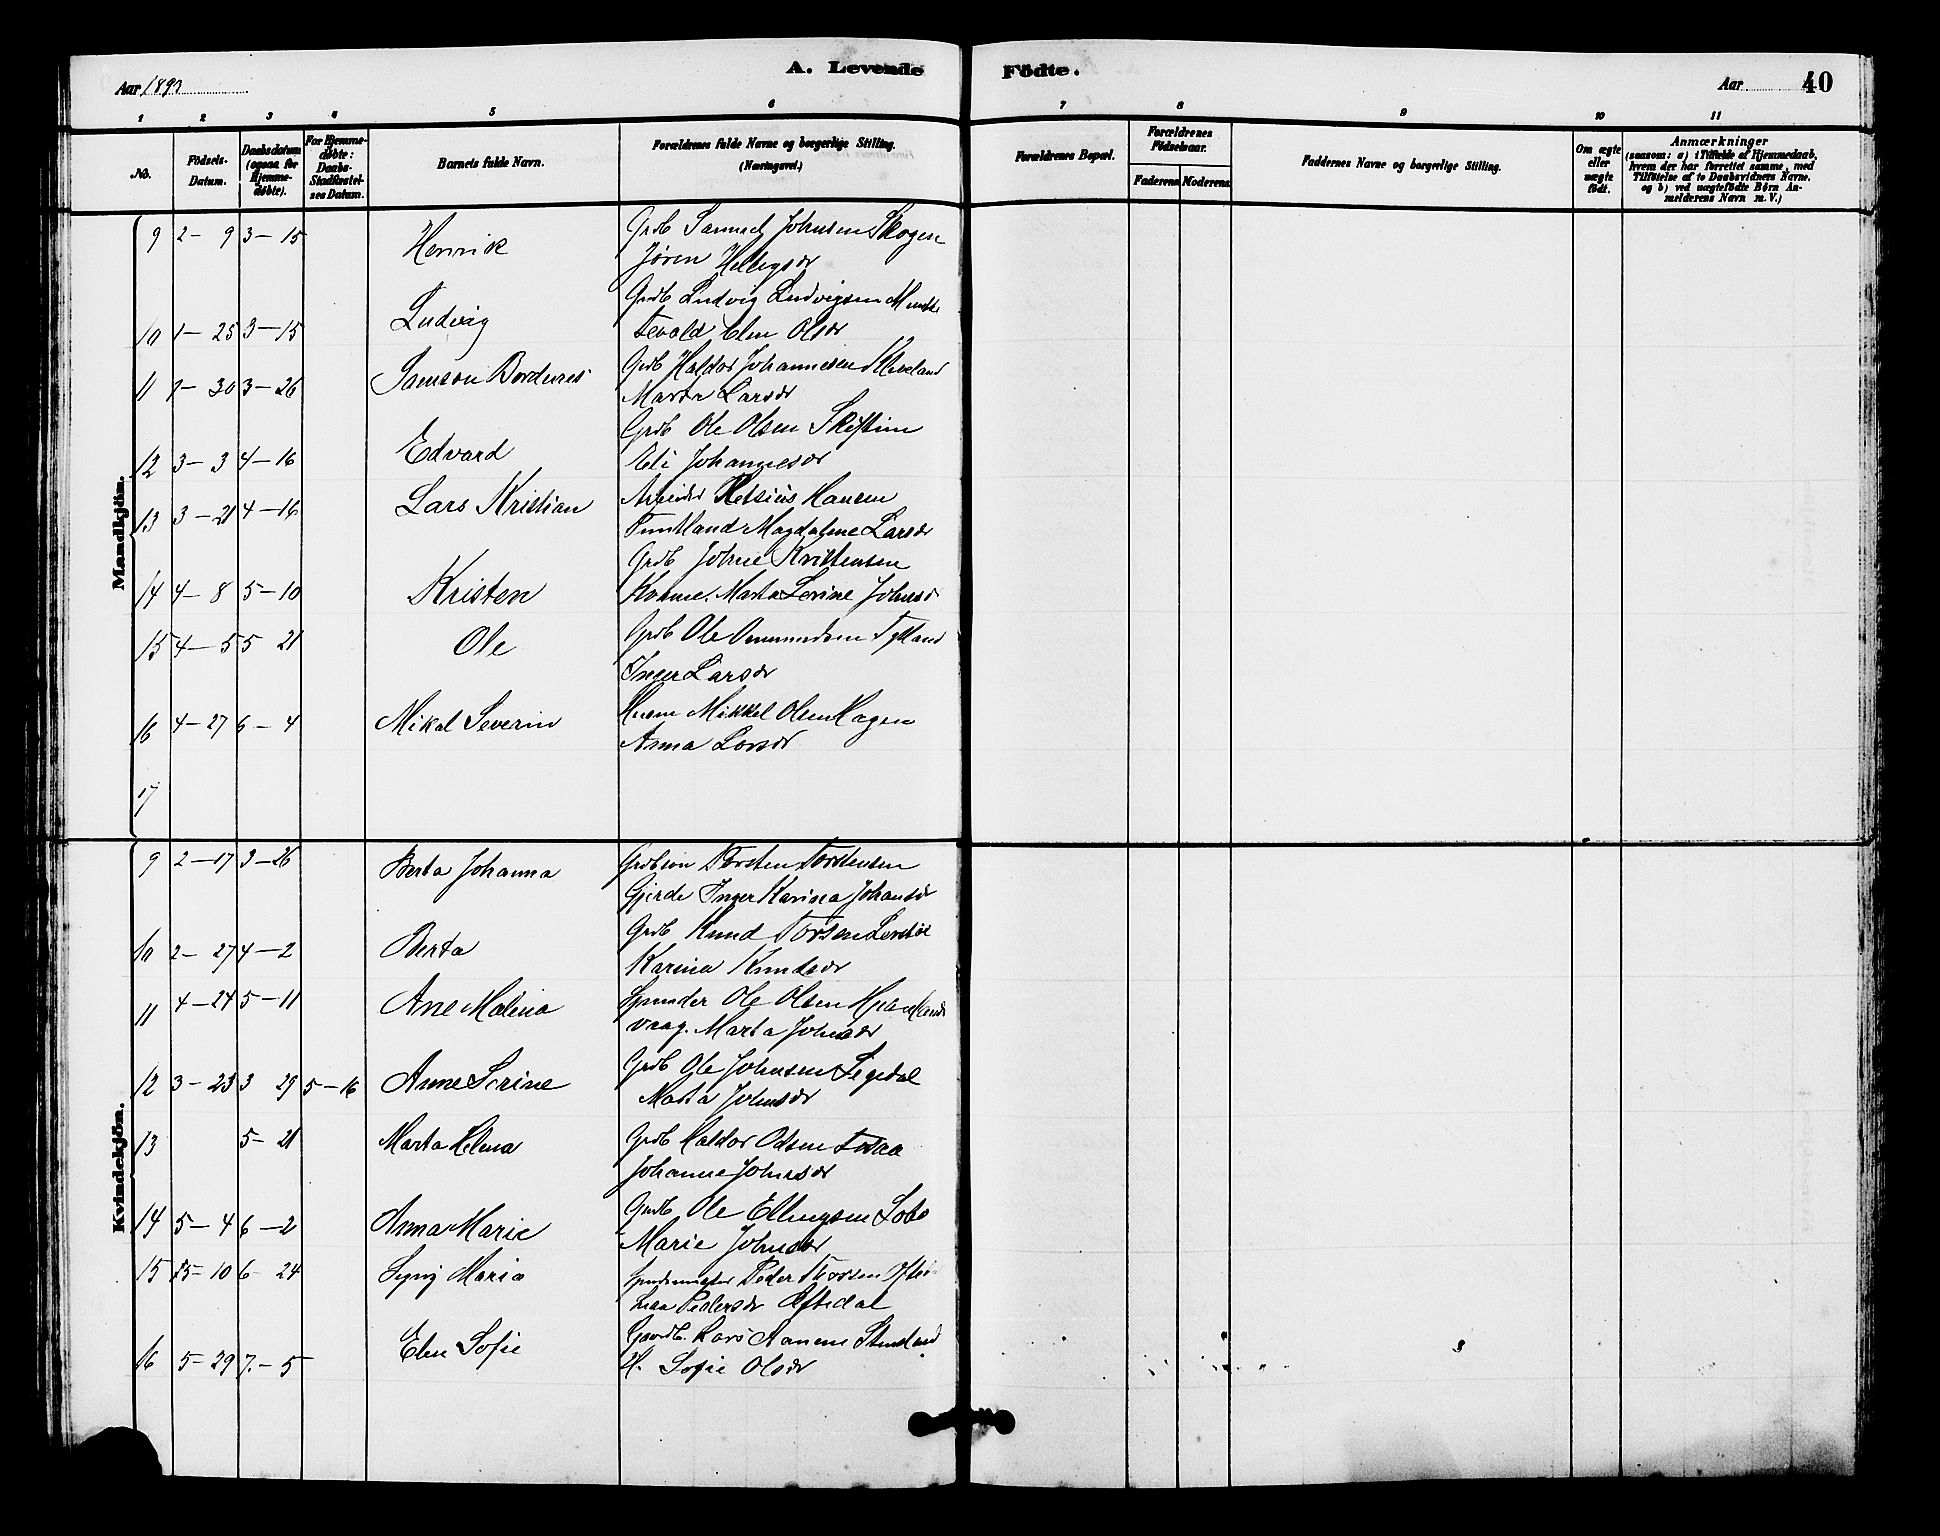 A. Levende Födte.
Aar 1893
Aar 40
1 2 3 4 5 6 7 8 9 10 11
No.
Födsels-Datum.
Daabsdatum (ogsaa for Hjemmedöbte).
For Hjemmedöbte: Daabs-Stadfæstelses Datum.
Barnets fulde Navn.
Forældrenes fulde Navne og borgerlige Stilling. (Næringsvei.)
Forældrenes Bopæl.
Forældrenes Födselsaar.
Faderens. Moderens.
Faddernes Navne og borgerlige Stilling.
Om ægte eller uægte födt.
Anmærkninger
(saasom: a) i Tilfælde af Hjemmedaab, hvem der har forrettet samme, med Tilföielse af to Daabsvidners Navne, og b) ved uægtefödte Börn Anmelderens Navn m. V.)
Mandkjön.
9 2-9 3-15 Henrik Grdb Samuel Johnsen Skogen
Jøren Helleysdr
10 1-25 3-15 Ludvig Grdb Ludvig Ludvigsen
Elen Olsdr
11 1-30 3-26 Samson Grdb Haldor Johannesen
Marta Larsdr
12 3-3 4-16 Edvard Grdb Ole Olsen
Eli Johannesdr
13 3-21 4-16 Lars Kristian Arbeider Hansen
Magdalene Larsdr
14 4-8 5-10 Kristen Grdb Johne Kristensen
Marta Serine Johnsd
15 4-5 5 21 Ole Grdb Ole Omundsen
Inger Larsdr
16 4-27 6-4 Mikal Severin Husm Mikkel Olsen Hagen
Anna Larsdr
17
Kvindekjön.
9 2-17 3-26 Berta Johanna Torsten Torstensen
Gjerde Inger Karina Johansdr
10 2-27 4-2 Berta Grdb Knud Torsen
Karina Knudsdr
11 4-24 5-11 Ane Malina Ole Olsen
vaag. Marta Johnsdr
12 3-23 3 29 5-16 Anne Serine Grdb Ole Johnsen
Marta Johnsdr
13 5-21 Marta Helena Grdb Haldor Odsen
Johanne Johnsdr
14 5-4 6-2 Anna Marie Grdb Ole Ellingsen
Marie Johnsdr
15 5-10 6-24 Maria Peder
Pedersdr Oftedal
16 5-29 7-5 Elen Sofie Gaardb. Lars
H. Sofie Olsdr